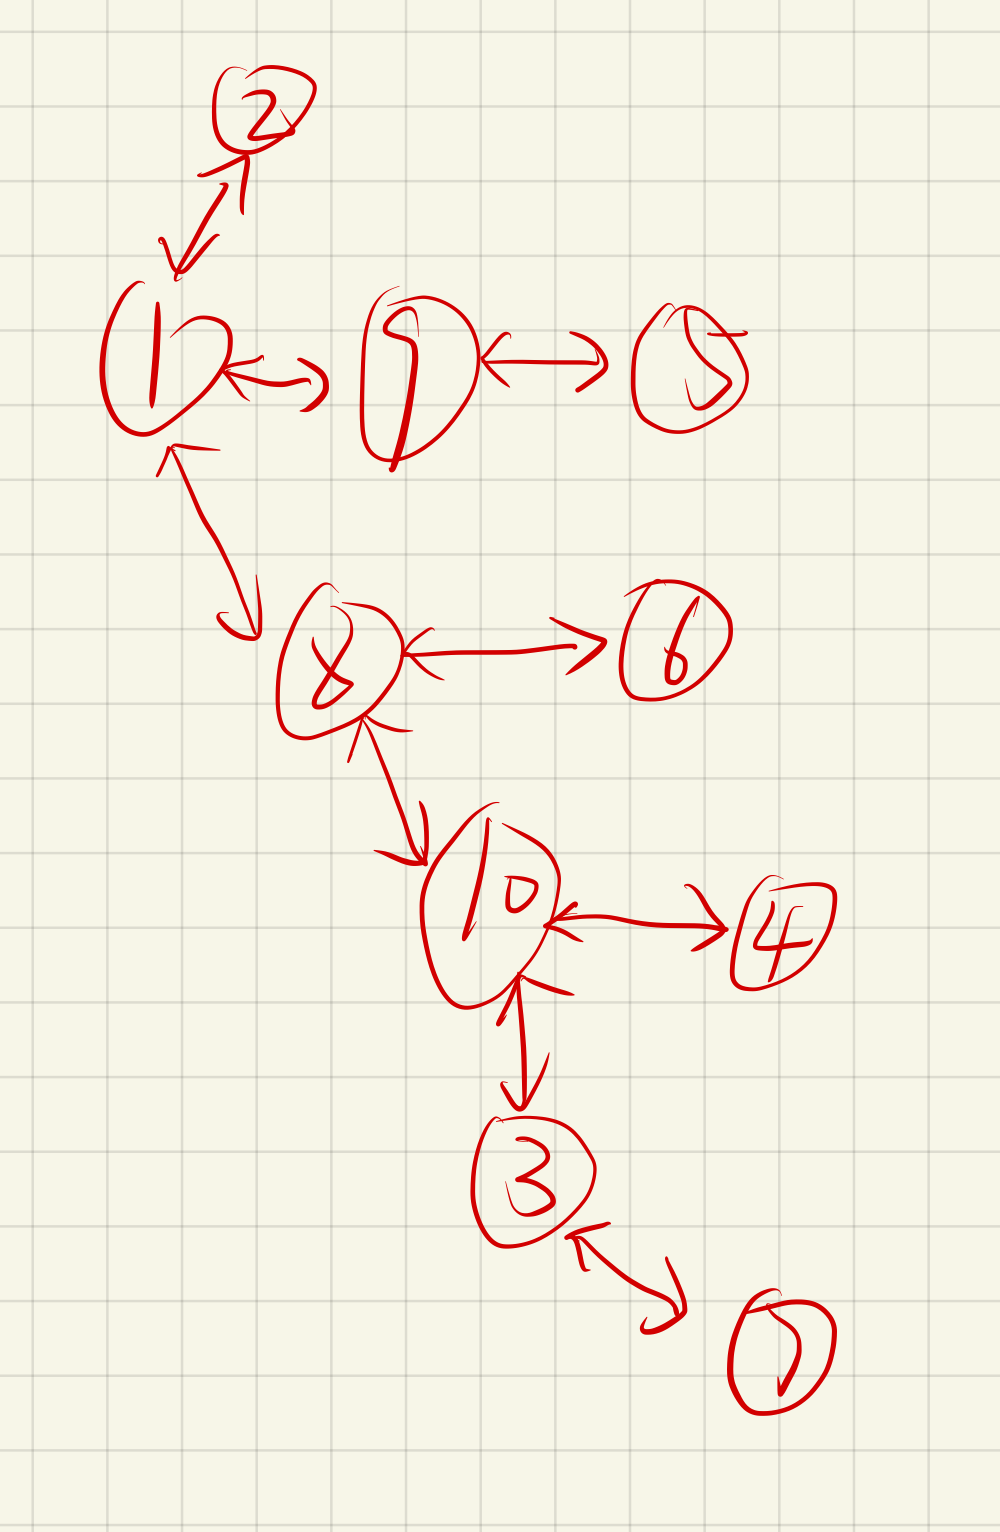 2
1 9 5
8 6
10 4
3
7